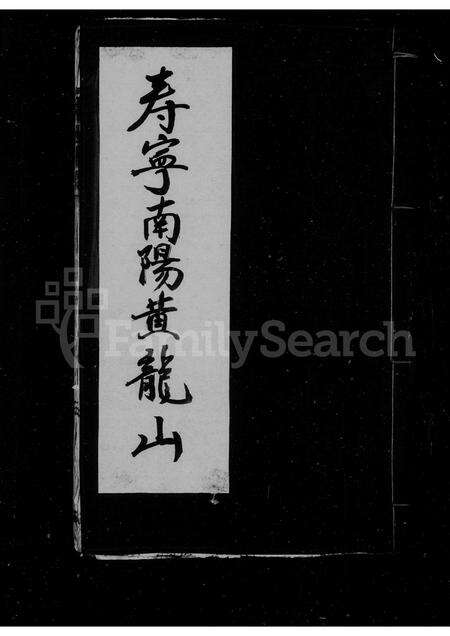 寿寧南陽黄龍山
FamilySearch